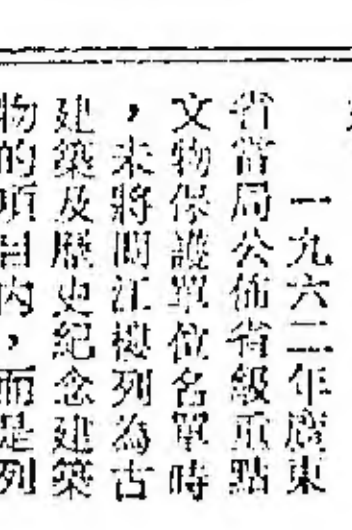 一九六二年廣東
省當局公佈省級重點
文物保護單位名單時
，未將閱江樓列為古
建築及歷史紀念建築
物的項目內，而是列